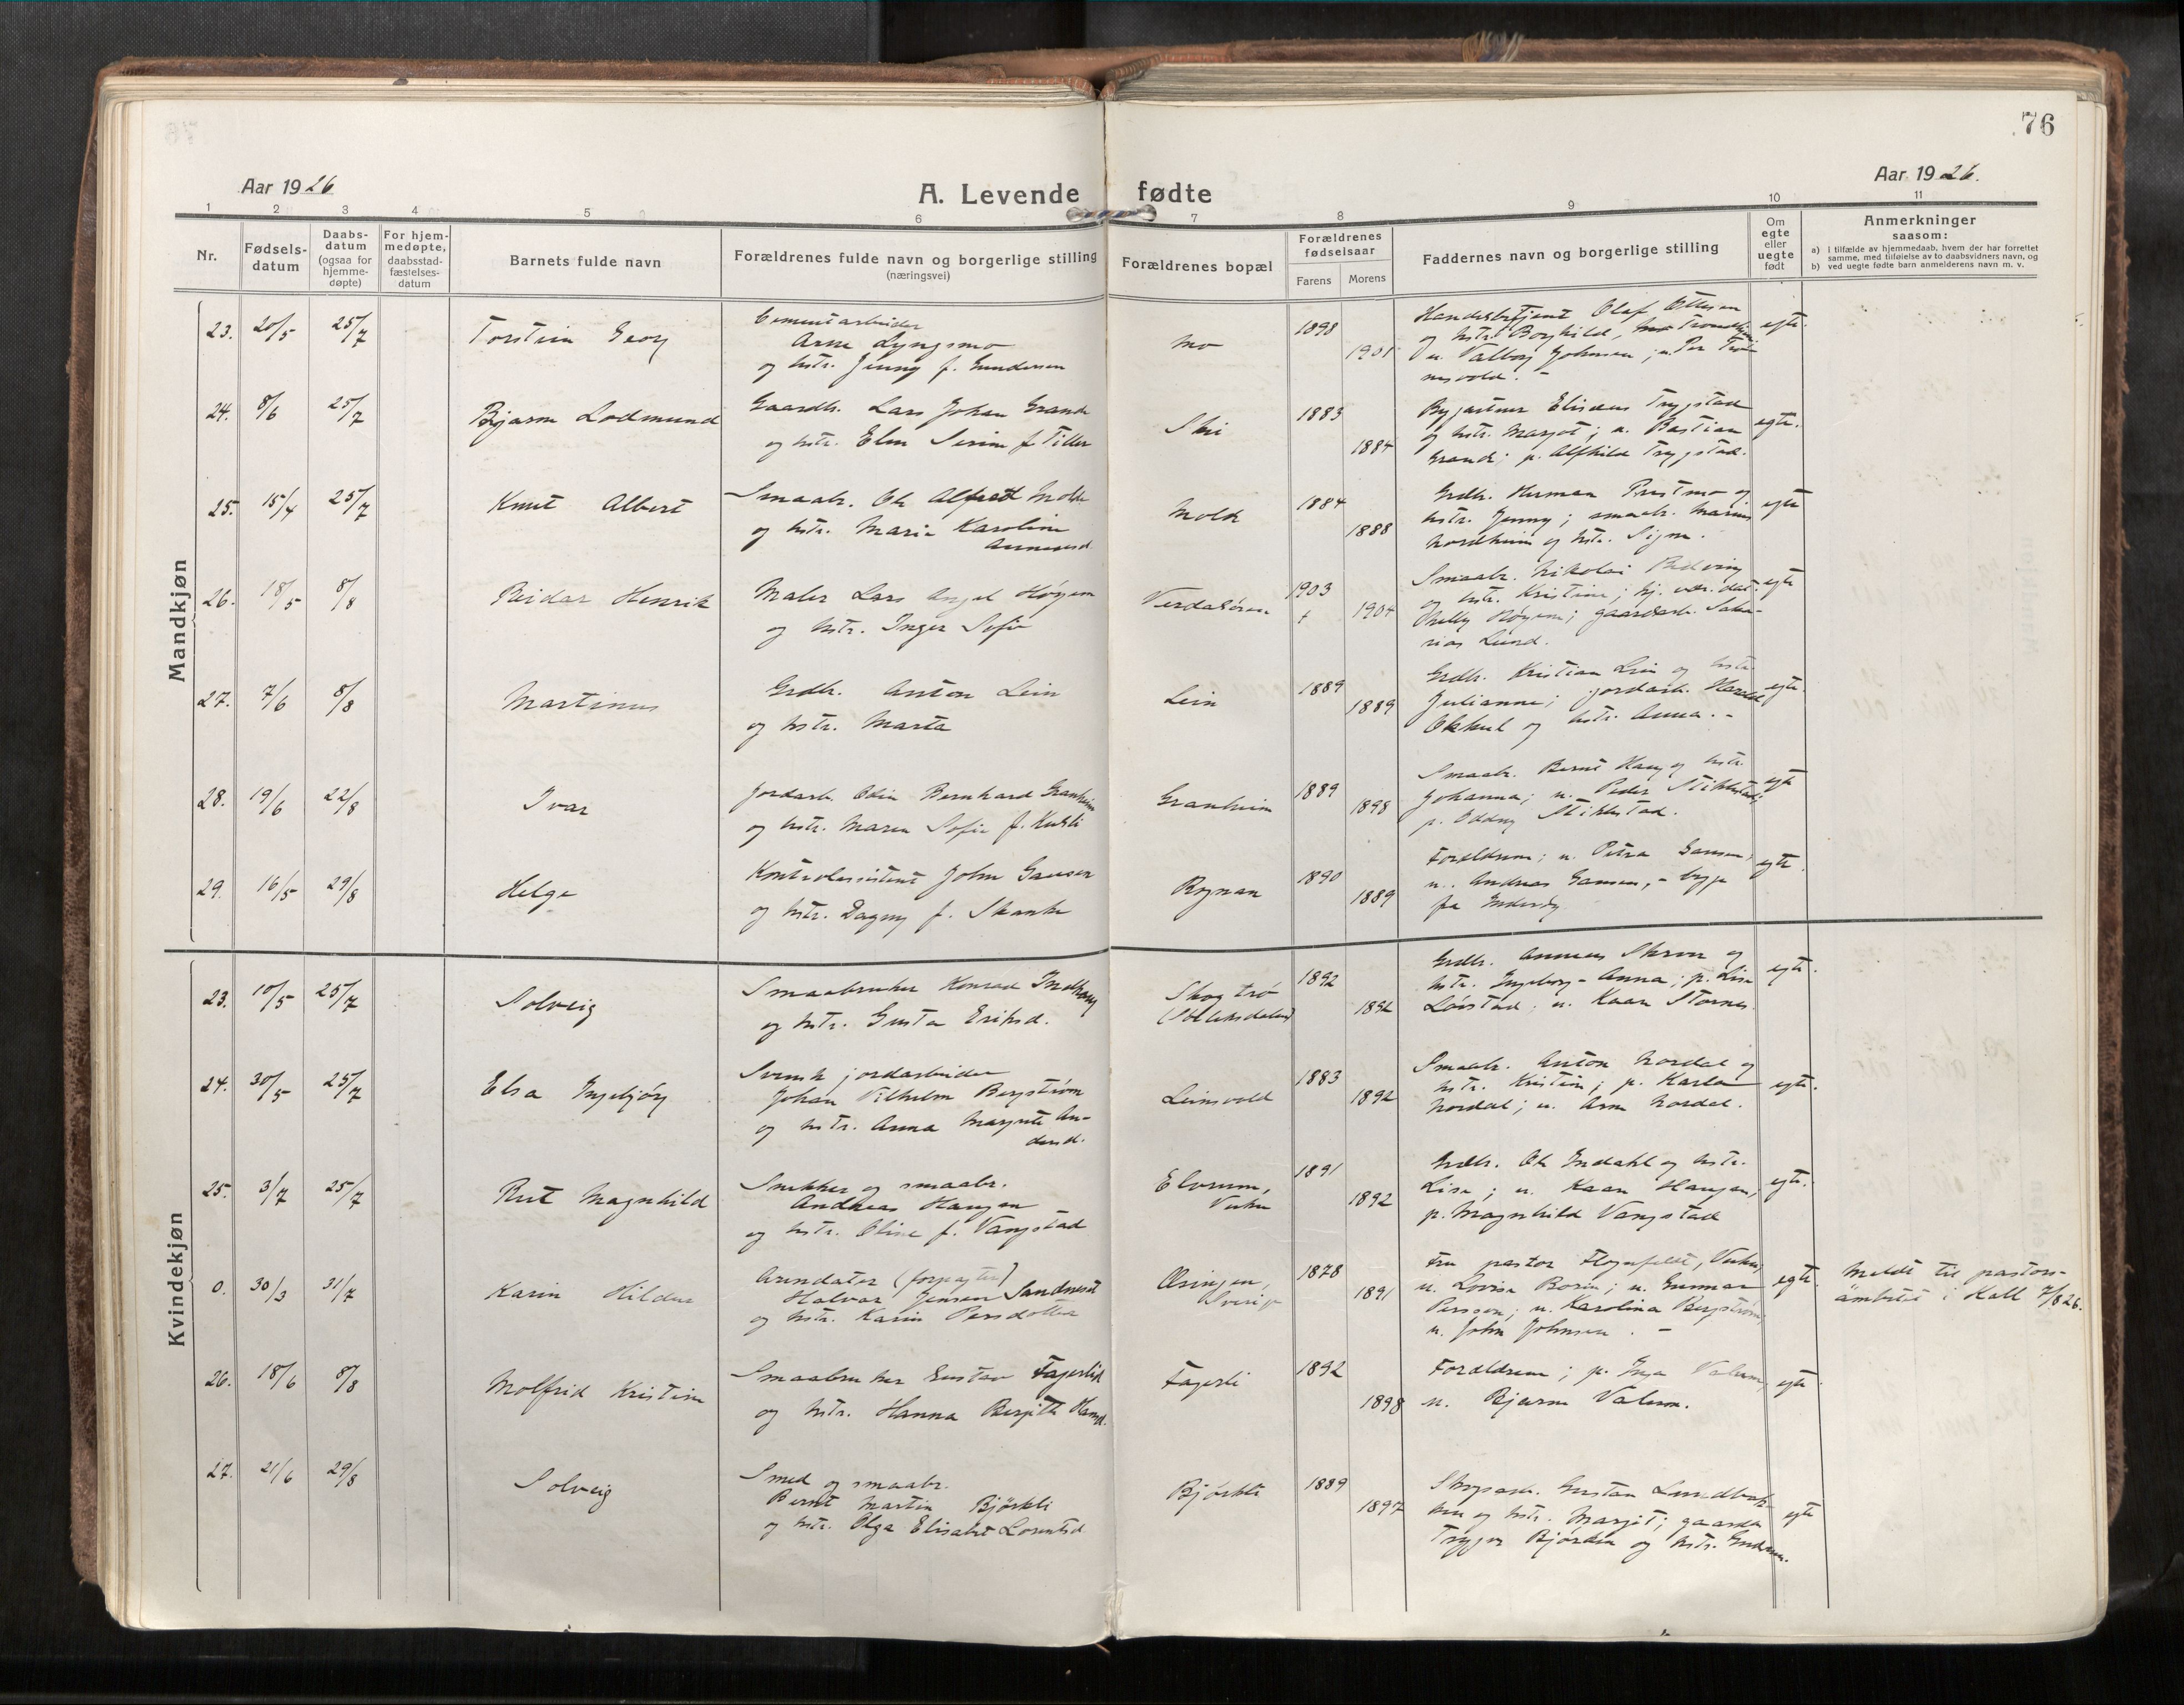 76
Aar 1926
A. Levende fødte
Aar 1926.
1 2 3 4 5 6 7 8 9 10 11
Nr.
Fødsels-
datum
Daabs-
datum
(ogsaa for
hjemme-
døpte)
For hjem-
medøpte,
daabsstad-
fæstelses-
datum
Barnets fulde navn
Forældrenes fulde navn og borgerlige stilling
(næringsvei)
Forældrenes bopæl
Forældrenes
fødselsaar
Farens Morens
Faddernes navn og borgerlige stilling
Om
egte
eller
uegte
født
Anmerkninger
saasom:
a) i tilfælde av hjemmedaab, hvem der har forrettet
samme, med tilføielse av to daabsvidners navn, og
b) ved uegte fødte barn anmelderens navn m. v.
Mandkjøn
23. 20/5 25/7 Torstein Georg
Cementarbeider
Arne Lyngsmo
og hstr. Jenny f. Gundersen
Mo 1898 1901
Handelsbetjent Olaf Ottesen
og hstr. Borghild, Trondhjem
u. Valborg Johnsen; u. Per
egte.
24. 8/6 25/7 Bjarne Lodmund
Gaardbr. Lars Johan Grande
og hstr. Elen Serine f. Tiller
Ski 1883 1884
Elisæus Trygstad
og hstr. Margot; u. Bastian
Grande; p. Alfhild Trygstad.
egte.
25. 15/4 25/7 Knut Albert
Smaabr. Ole Alfred Molde
og hstr. Marie Karoline
Molde 1884 1888
Grdbr. Herman Prestmo og
hstr. Jenny; smaabr. Marius
Nordheim og hstr. Signe.
egte
26. 18/5 8/8 Reidar Henrik
Maler Lars Angel Høgem
og hstr. Inger Sofie
Verdalsøren 1903 1904
Smaabr. Nikolai
og hstr. Kristine; hj. vær. dat.
Høgem; gaardarb. Saka-
rias Lund.
egte
27. 7/6 8/8 Martinus
Grdbr. Anton Lein
og hstr. Marta
Lein 1889 1889
Grdbr. Kristian Lein og hstr.
Julianne; jordarb. Harald
Okkul og hstr. Anna. -
egte.
28. 19/6 22/8 Ivar
Jordarb. Odin Bernhard Granheim
og hstr. Maren Sofie f. Kulsli
Granheim 1889 1898
Smaabr. Bernt Haug og hstr.
Johanna; u. Peder Stiklestad;
p. Oddny Stiklestad.
egte
29. 16/5 29/8 Helge
Kontrolassistent John Gausen
og hstr. Dagny f. Skanke
Rognan 1890 1889
Forældrene; u. Petra Gausen;
u. Andreas Gausen, - begge
fra Inderøy.
egte.
Kvindekjøn
23. 10/5 25/7 Solveig
Smaabruker Konrad Indhaug
og hstr. Gusta Eriksd.
Skogtrø 1892 1892
Grdbr. Anneus Skrove og
hstr. Ingeborg-Anna; p. Lise
Løvstad; u. Kaare Stornes.
egte.
24. 30/5 25/7 Elsa Ingebjörg
Svensk jordarbeider
Johan Vilhelm Bergström
og hstr. Anna Margrete An-
dersd.
Leinsvold 1883 1892
Smaabr. Anton Nordal og
hstr. Kristine; p. Karla
Nordal; u. Arne Nordal.
egte.
25. 3/7 25/7 Rut Magnhild
Snekker og smaabr.
Andreas Haugen
og hstr. Oline f. Vangstad
Elverum,
1891 1892
Grdbr. Ole Indahl og hstr.
Lise; u. Kaare Haugen,
p. Magnhild Vangstad
egte.
0. 30/3 31/7 Karin Hildur
Arendator (forpagter)
Halvar Jensen Sandnest
og hstr. Karin Persdotter
1878 1891
Fru pastor Flognfeldt,
u. Lovise Borin; u. Gunnar
Persson; u. Karolina Bergström,
u. John Johnsen. -
egte.
Meldt til pastors-
ämbetet i Kall 7/8 26.
26. 18/6 8/8 Molfrid Kristine
Smaabruker Gustav Fagerli
og hstr. Hanna Bergitte
Fagerli 1892 1898
Forældrene; p. Inga Valum,
u. Bjarne Valum.
egte
27. 21/6 29/8 Solveig
Smed og smaabr.
Bernt Martin Bjørkli
og hstr. Olga Elisabet Lorentsd
Bjørkli 1889 1897
Skogsarb. Gustav Lundbak-
ken og hstr. Margit; gaardbr.
Trygve Bjørken og hstr. Gudrun.
egte